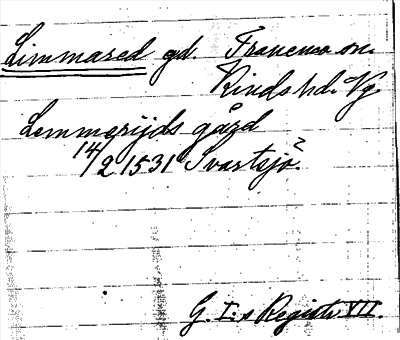 Limmared gd. Tranemo sn.
Kinds hd. Vg
Lemmerijds gård
14/2 1531 Svartsjö?
G. I:s Registr. VII.